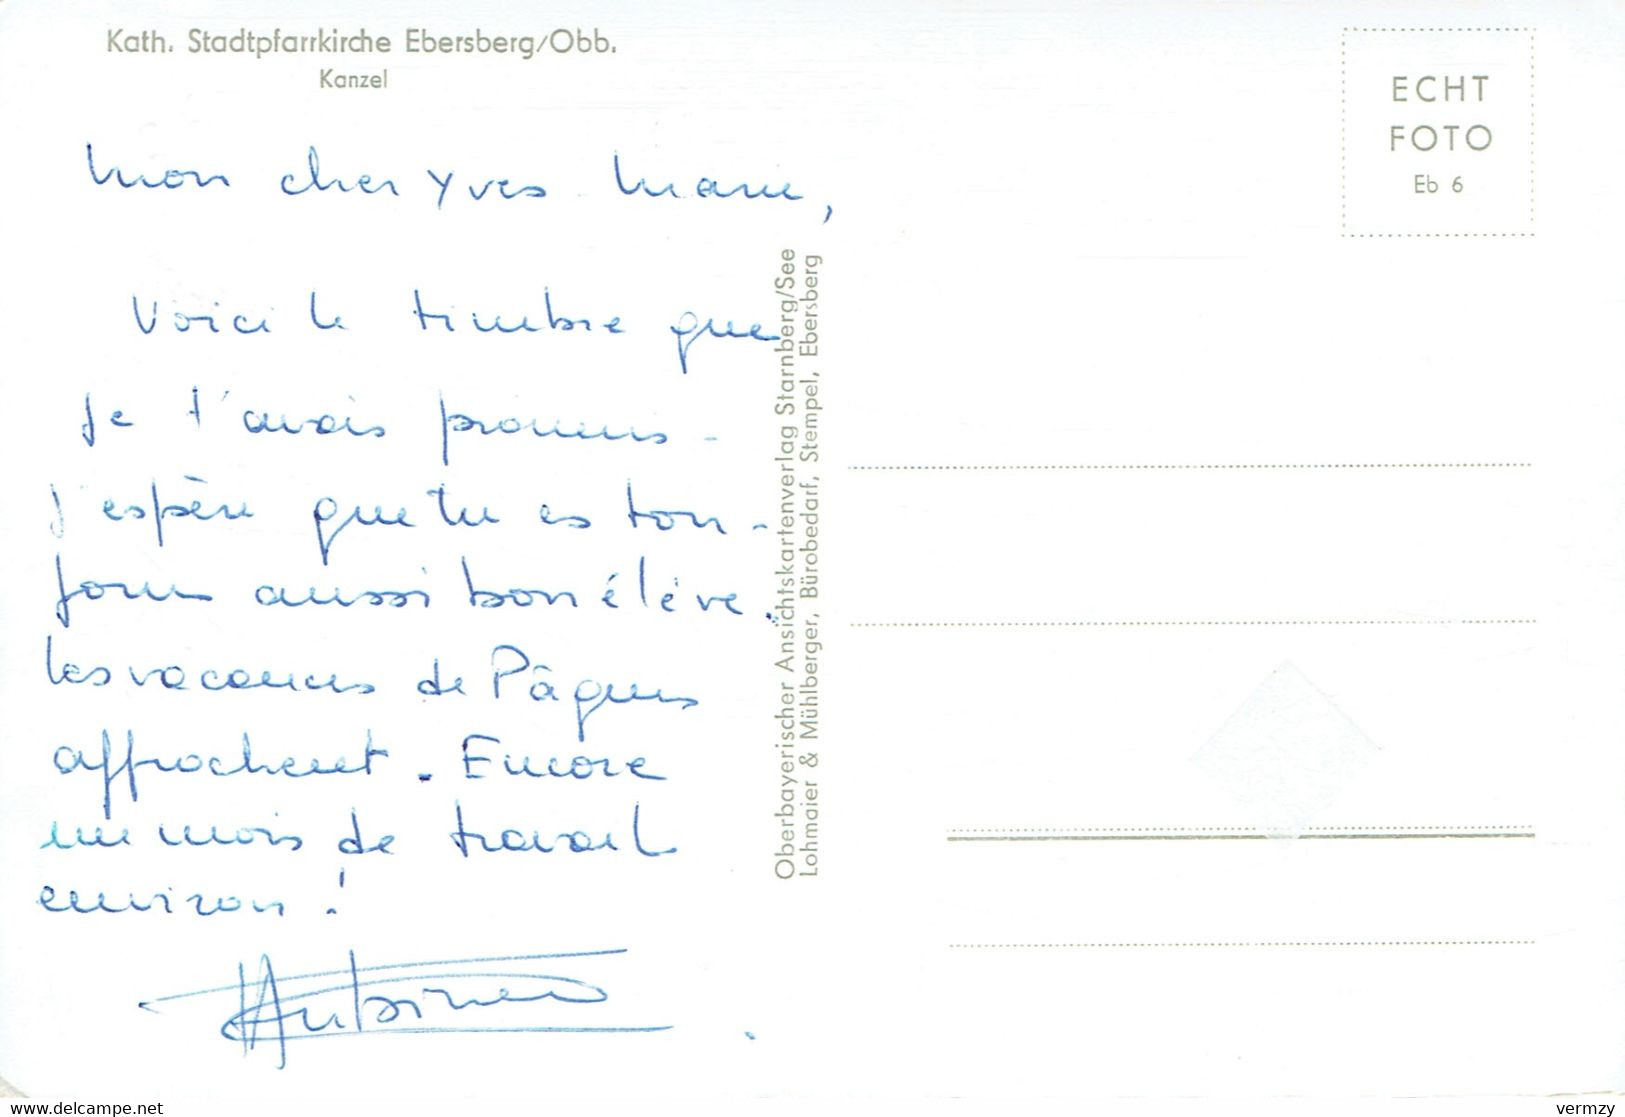 Kath. Stadtpfarrkirche Ebersberg/Obb.
Kanzel
ECHT
FOTO
Eb 6
Mon cher Yves Marie,
Voici le timbre que
je t'avais promis -
J'espère que tu es tou-
jours aussi bon élève.
Les vacances de Pâques
approchent. Encore
un mois de travail
environ !
Antoine
Oberbayerischer Ansichtskartenverlag Starnberg/See
Lohmaier & Mühlberger, Bürobedarf, Stempel, Ebersberg
www.delcampe.net
vermzy